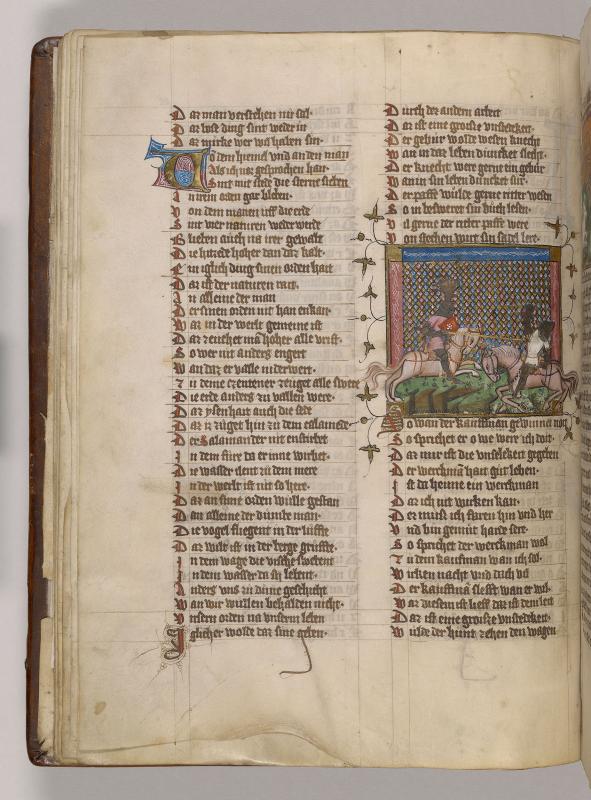 Daz man versthen mir sal·
Daz lose ding sint weder in
Daz mirke wer wa haben sin·
Zo dem himel vnd an den man
Als ich uch gesprochen han·
Sint mit sted die sterne sieben
In irem oden gar bliben·
Von dem manen uff die erde
Sint wer naturen weder werde
Blieben auch na irer gewalt
Die hitzede hoher dan daz kalt·
Ein iglich ding sinen orden hait
Daz ist der naturen rait·
In alleine der man
Der sinen orden nit han enkan·
Waz in der werlt gemeine ist
Daz zeuchet ma hoher alle vrist·
So wer nit anders engert
Wan daz er valle niderwert·
Zu deme czentener zeuget alle swere
Die erde anders zu vallen were·
Daz ysenhait auch die sede
Daz iz zuget hin zu dem calamede·
Der Salamander nit enstirbet
In dem fure da er inne wirbet·
Die wasser clent zu dem mere
In der werlt ist nit so here·
Daz an sime orden wulle gestan
Dan alleine der dumbe man·
Die vogel fliegent in der luffte
Daz wilt ist in der berge gruffte·
In dem wage die vische swebent
In dem wasser da sy lebent·
Anders vns zu dinne geschicht
Wan wir wullen behalden nicht·
Vnsern orden na vnserm leben
Iglicher wolde daz sine geben·
Durch der andern arbeit
Daz ist eine grosze vnstedekeit·
Der gebur wolde wesen knecht
Wan in daz leben duncket slecht·
Der knecht were gerne ein gebur
Wan in sin leben duncket sur·
Der paffe wulde gerne ritter wesen
So in besweret sin buch lesen·
Vil gerne der ritter paffe were
Von stechen wurt sin sadel lere·
So wan der kauffman gewinnet not
So sprichet er o we were ich doit·
Daz mir ist die vnselekeit gegeben
Der werckman hait gut leben·
Ist da heime ein werckman
Daz ich nit wirken kan·
Der muß ich faren hin vnd her
Vnd bin gemut harde sere·
So sprichet der werckman wol
Zu dem kaufman wan ich sol·
Wircken nacht vnd dach vil
Der kauffman slefft wan er wil·
Waz diesem ist lieff daz ist dem leit
Daz ist eine grosze vnstedekeit·
Wulde der hunt zehen den wagen